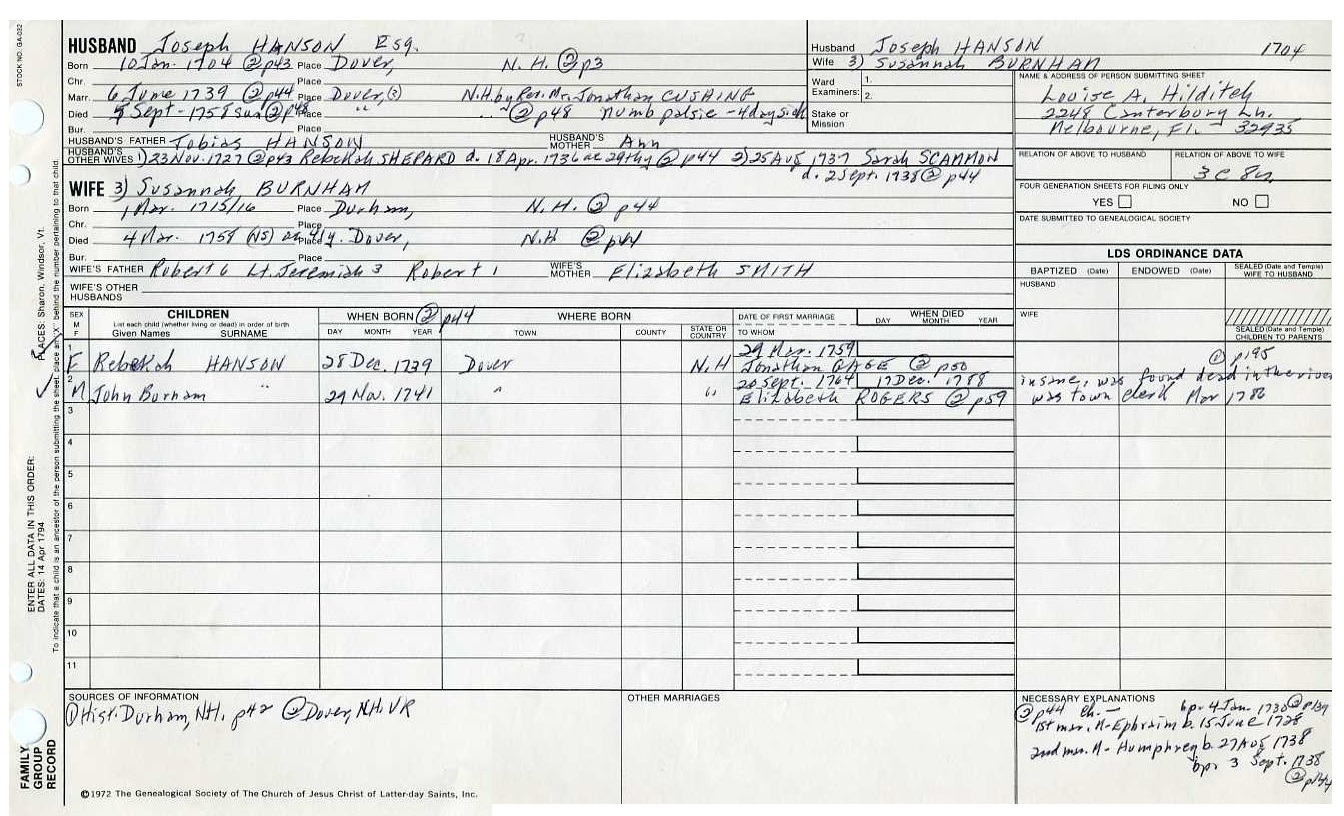 STOCK NO. GA-032
HUSBAND Joseph HANSON Esq.
Born 10 Jan. 1704 ② p43 Place Dover, N. H. ② p3
Chr. Place
Marr. 6 June 1739 @ p44 Place Dover, N.H. by Rev. Mr. Jonathan CUSHING
Died Sept - 1758 sun ② p48 Place " ② p48 numb palsie - 4 day sick
Bur. Place
HUSBAND'S FATHER Tobias HANSON HUSBAND'S MOTHER Ann
HUSBAND'S OTHER WIVES 1) 23 Nov. 1727 @ p43 Rebekah SHEPARD d. 18 Apr. 1736 ae 29thy @ p44 2) 25 Aug 1737 Sarah SCAMMON
d. 2 Sept. 1738 ② p44
Husband Joseph HANSON 1704
Wife 3) Susannah BURNHAM
Ward Examiners: 1.
2.
Stake or Mission
NAME & ADDRESS OF PERSON SUBMITTING SHEET
Louise A. Hilditch
2248 Canterbury Ln.
Melbourne, Fl. - 32935
RELATION OF ABOVE TO HUSBAND RELATION OF ABOVE TO WIFE
3 C 8
FOUR GENERATION SHEETS FOR FILING ONLY
YES NO
DATE SUBMITTED TO GENEALOGICAL SOCIETY
WIFE 3) Susannah BURNHAM
Born 1 Mar. 1715/16 Place Durham, N. H. ② p44
Chr. Place
Died 4 Mar. 1758 (NS) Place Dover, N.H ② p44
Bur. Place
WIFE'S FATHER Robert 6 Lt. Jeremiah 3 Robert 1 WIFE'S MOTHER Elizabeth SMITH
WIFE'S OTHER HUSBANDS
LDS ORDINANCE DATA
BAPTIZED (Date) ENDOWED (Date) SEALED (Date and Temple) WIFE TO HUSBAND
HUSBAND
WIFE
SEALED (Date and Temple) CHILDREN TO PARENTS
SEX M F CHILDREN WHEN BORN ② p44 WHERE BORN DATE OF FIRST MARRIAGE WHEN DIED
List each child (whether living or dead) in order of birth
Given Names SURNAME DAY MONTH YEAR TOWN COUNTY STATE OR COUNTRY TO WHOM DAY MONTH YEAR
1 F Rebekah HANSON 28 Dec. 1739 Dover N.H 29 Mar. 1759
Jonathan GAGE @ p50 ① p195
2 M John Burham " 29 Nov. 1741 " " 20 Sept. 1764 17 Dec. 1788 insane, was found dead in the river
Elizabeth ROGERS ② p59 was town clerk Mar 1786
3
4
5
6
7
8
9
10
11
SOURCES OF INFORMATION
① Hist. Durham, N.H. p42 ② Dover, N.H. VR
OTHER MARRIAGES
NECESSARY EXPLANATIONS
② p44 ch. — bp. 4 Jan. 1730 ② p139
1st mar. M - Ephraim b. 15 June 1728
2nd mar. M - Humphrey b. 27 Aug 1738
bp. 3 Sept. 1738
② p144
ENTER ALL DATA IN THIS ORDER:
DATES: 14 Apr 1794 PLACES: Sharon, Windsor, Vt.
To indicate that a child is an ancestor of the person submitting the sheet, place an "X" behind the number pertaining to that child.
FAMILY GROUP RECORD
©1972 The Genealogical Society of The Church of Jesus Christ of Latter-day Saints, Inc.